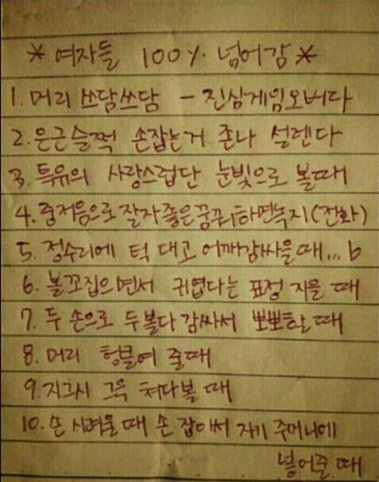 * 여자들 100% 넘어감 *
1. 머리 쓰담쓰담 - 진심게임오버다
2. 은근슬쩍 손잡는거 존나 설렌다
3. 특유의 사랑스럽단 눈빛으로 볼때
4. 중저음으로 잘자 좋은꿈꿔 하면녹지(전화)
5. 정수리에 턱 대고 어깨감싸올때... b
6. 볼꼬집으면서 귀엽다는 표정 지을 때
7. 두 손으로 두볼다 감싸서 뽀뽀할 때
8. 머리 헝클여 줄때
9. 지그시 그윽 쳐다볼 때
10. 손 시려울 때 손 잡아서 자기 주머니에
넣어줄 때